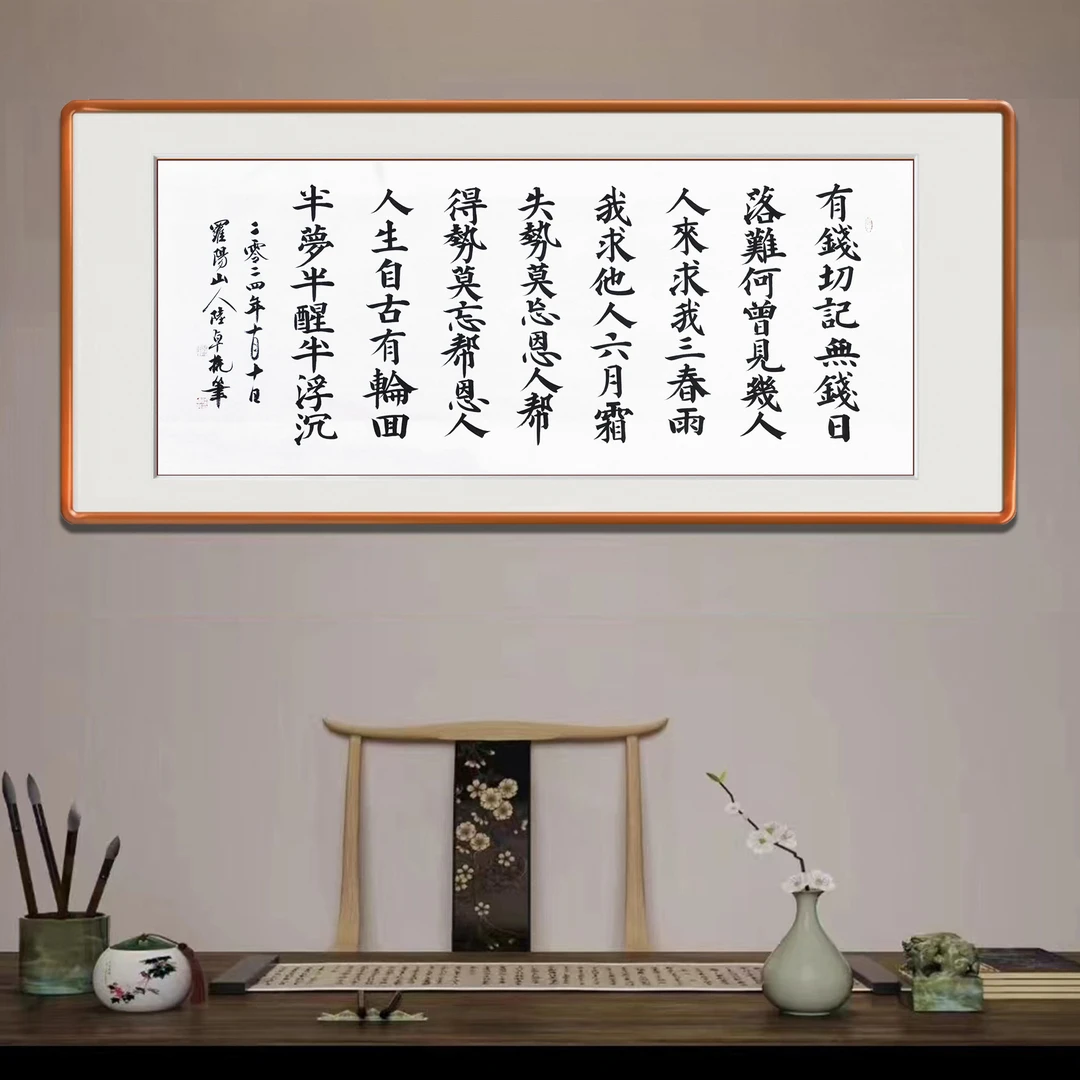 有錢切記無錢日
落難何曾見幾人
人來求我三春雨
我求他人六月霜
失勢莫忘恩人帮
得勢莫忘帮恩人
人生自古有輪回
半夢半醒半浮沉
二零二四年十月十日
羅陽山人陸卓 筆